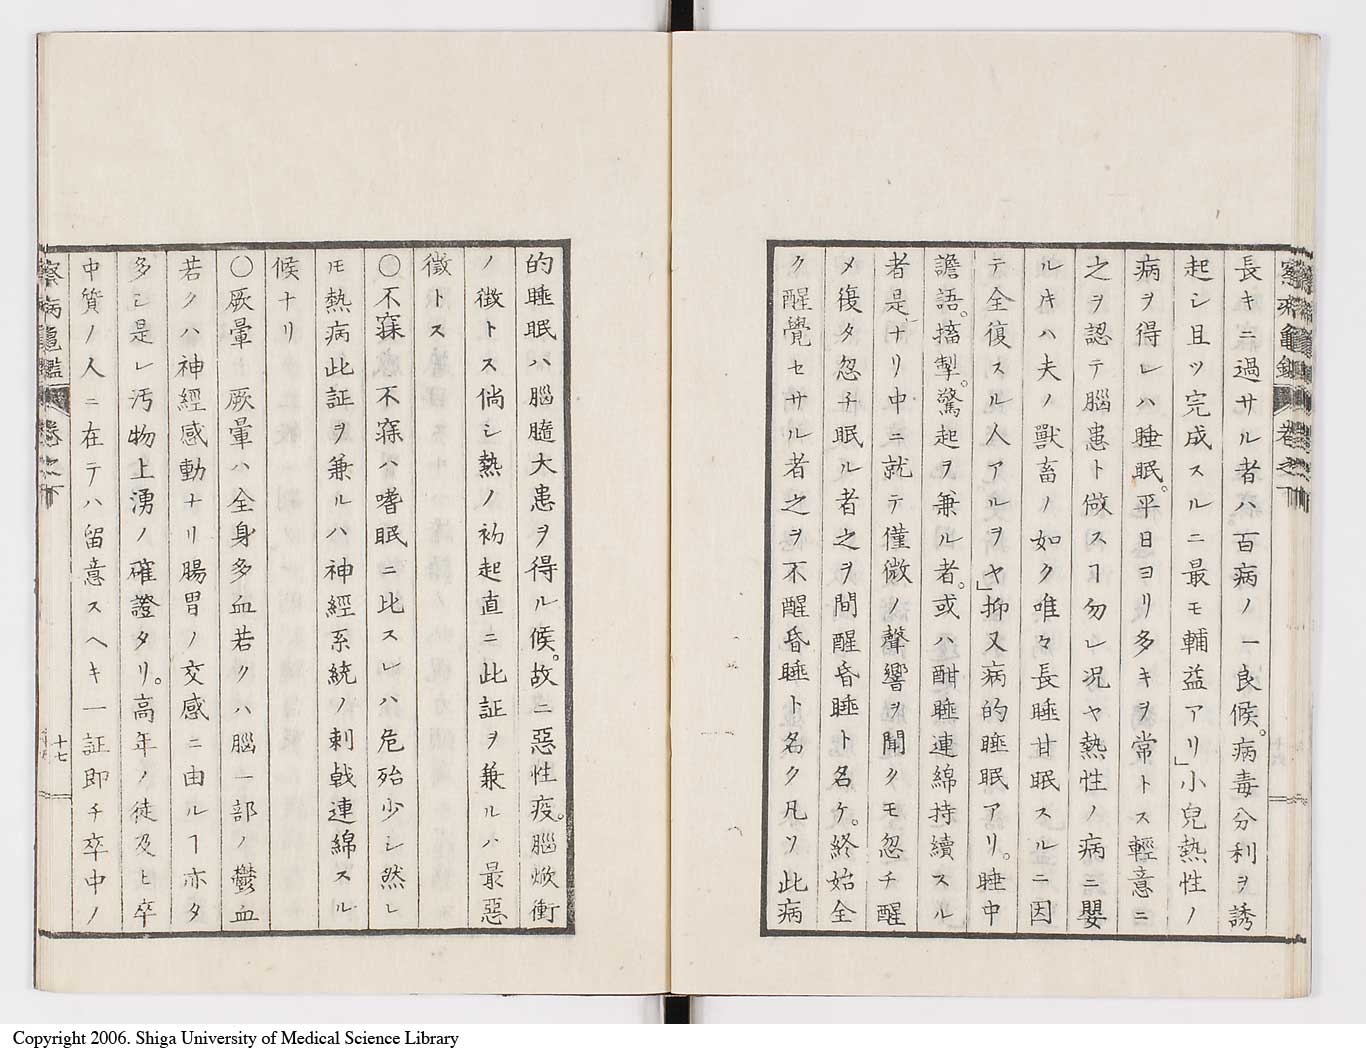 長キニ過サル者ハ百病ノ一良候。病毒分利ヲ誘
起シ且ツ完成スルニ最モ輔益アリ」小兒熱性ノ
病ヲ得レハ睡眠。平日ヨリ多キヲ常トス輕意ニ
之ヲ認テ腦患ト做スヿ勿レ况ヤ熱性ノ病ニ嬰
ルキハ夫ノ獸畜ノ如ク唯々長睡甘眠スルニ因
テ全復スル人アルヲヤ」抑又病的睡眠アリ。睡中
譫語。搐掣。驚起ヲ兼ル者。或ハ酣睡連綿持續スル
者是ナリ中ニ就テ僅微ノ聲響ヲ聞クモ忽チ醒
メ復タ忽チ眠ル者之ヲ間醒昏睡ト名ケ。終始全
ク醒覺セサル者之ヲ不醒昏睡ト名ク凡ソ此病
的睡眠ハ腦髓大患ヲ得ル候。故ニ惡性疫。腦焮衝
ノ徴トス倘シ熱ノ初起直ニ此証ヲ兼ルハ最惡
徴トス
〇不寐 不寐ハ嗜眠ニ比スレハ危殆少シ然レ
モ熱病此証ヲ兼ルハ神經系統ノ刺戟連綿スル
候ナリ
〇厥暈 厥暈ハ全身多血若クハ腦一部ノ鬱血
若クハ神經感動ナリ腸胃ノ交感ニ由ルヿ亦タ
多シ是レ汚物上湧ノ確證タリ。高年ノ徒及ヒ卒
中質ノ人ニ在テハ留意スヘキ一証即チ卒中ノ
察病龜鑑 卷之下
十七
Copyright 2006. Shiga University of Medical Science Library